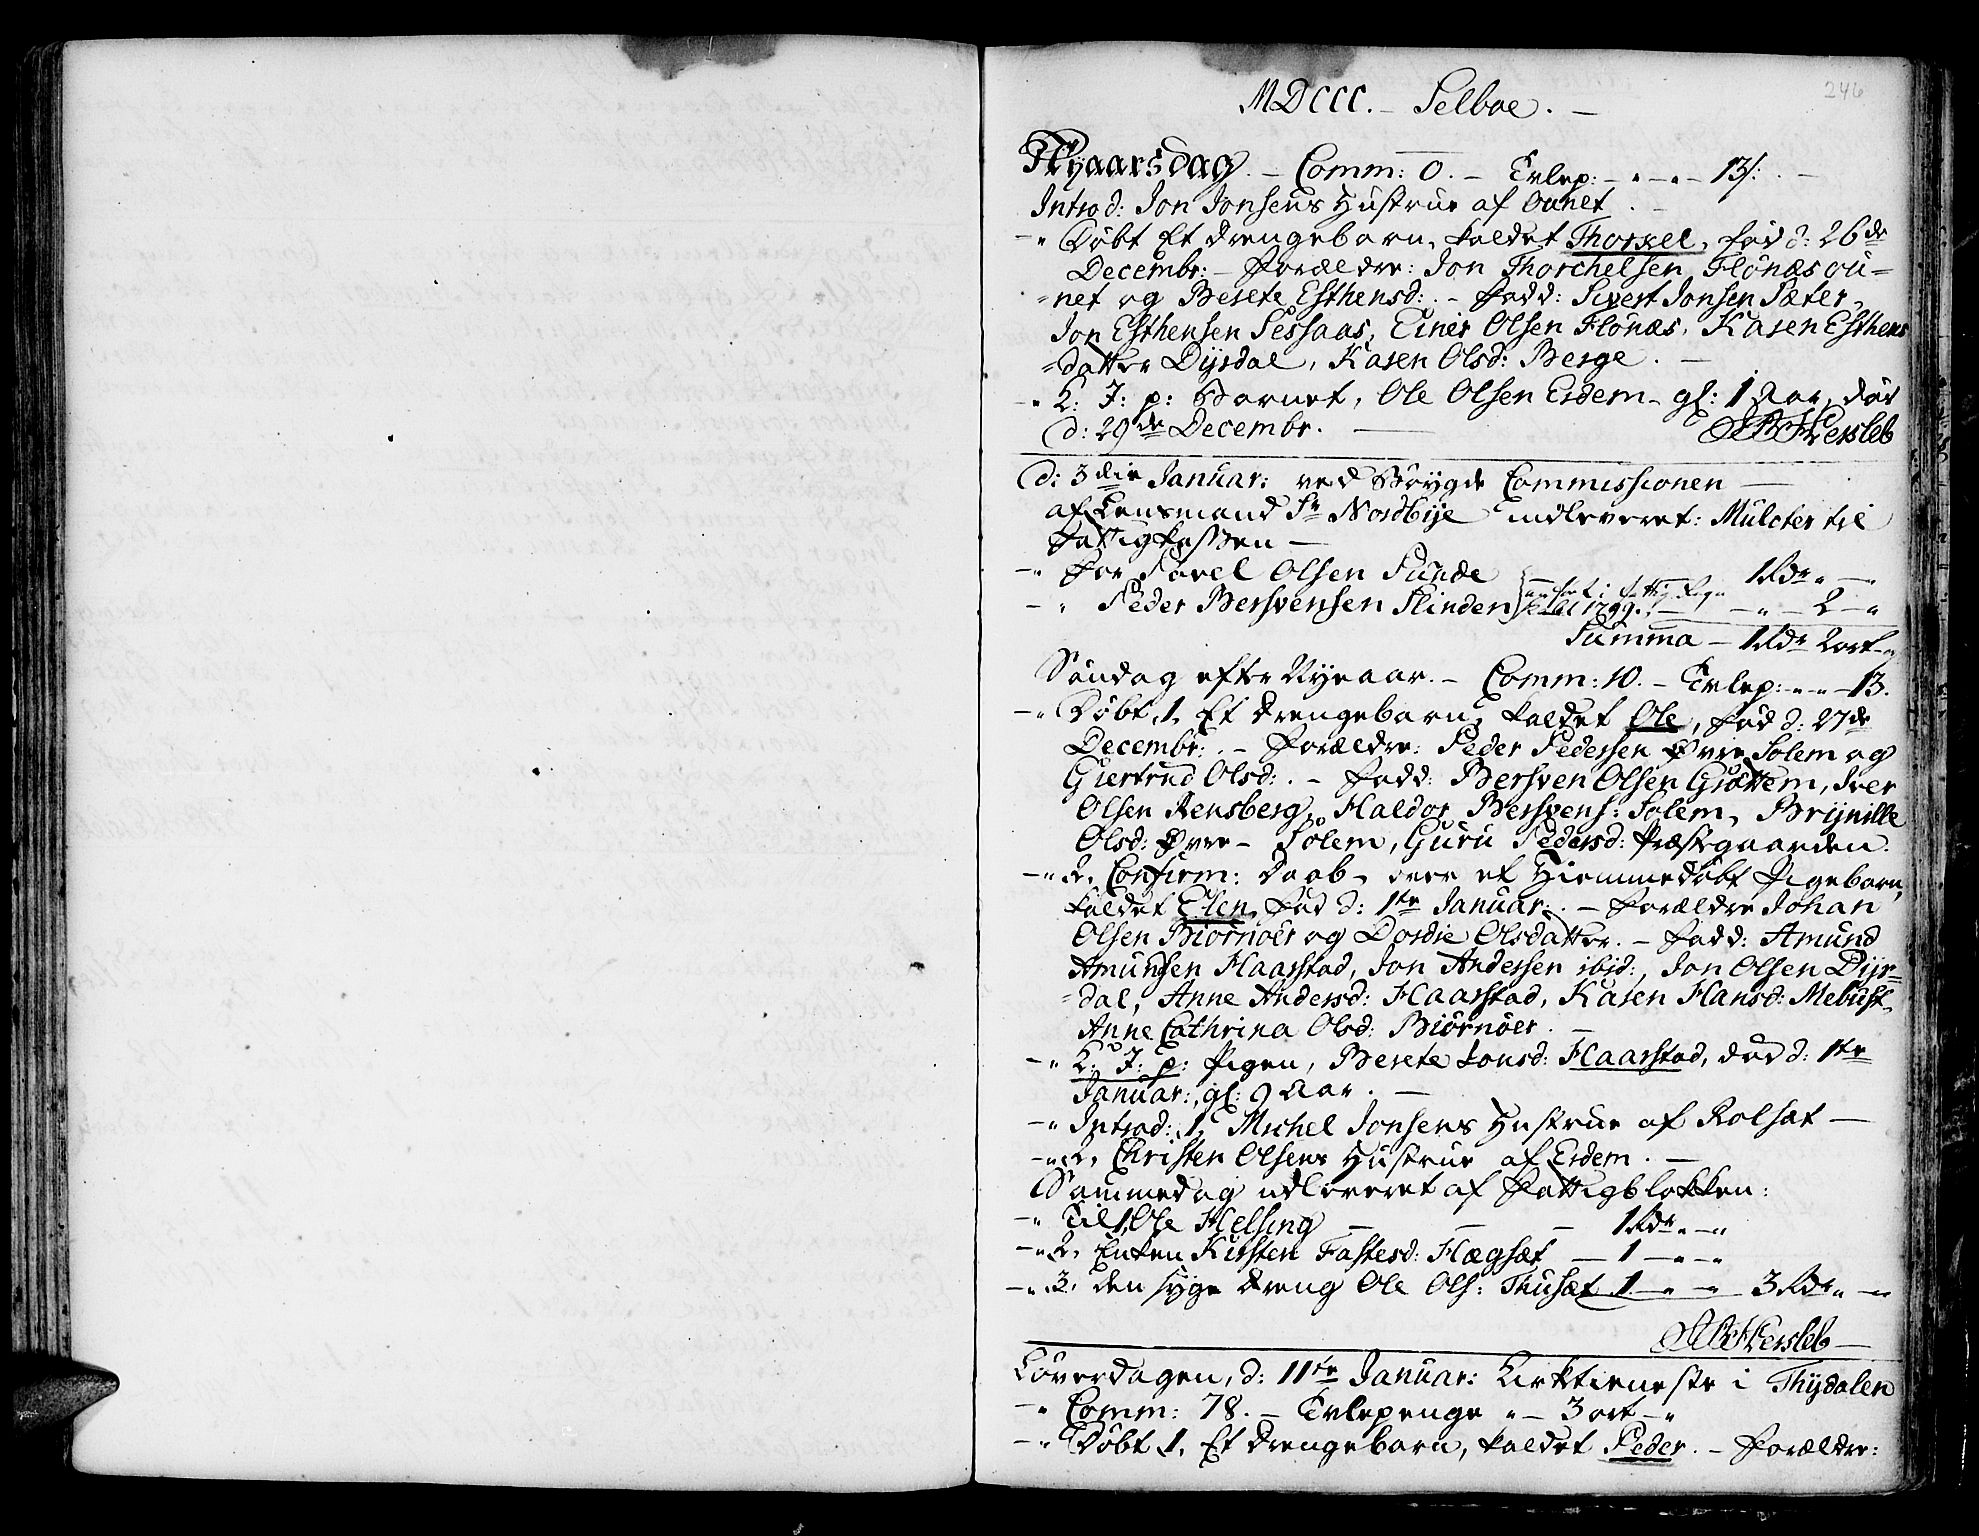 246
MDCCC. - Selboe. -
Nyaarsdag. - Comm: 0. - Tvlep: - " - " - 13/: -
Introd: Jon Jonsens Hustrue af Ounet. -
-" Døbt Et Drengebarn, kaldet Thorkel, fød d: 26de
Decembr: - Forældre: Jon Thorchelsen Flönæsou=
=net og Berete Esthensd: . - Fadd: Sivert Jonsen Sæter,
Jon Esthensen Sessaas, Einer Olsen Flönæs, Karen Esthens
=datter Dyrdal, Karen Olsd: Berge. -
-" L: J: p: Barnet, Ole Olsen Erdem - gl: 1 Aar, død
d: 29de Decembr. - Hersleb
d: 3die Januar: ved Bøygde Commissionen -
af Lensmand Sr Nordbye indleveret: Mulcter til
Fattigkassen -
-" For Povel Olsen Sunde - 1 Rdr " - "
-" Peder Bersvensen Slinden 1799. - " - 2 - "
Summa - 1 Rdr 2 ort - "
Søndag efter Nyeaar. - Comm: 10. - Tvlep: - " - " - 13.
-" Døbt, 1, Et Drengebarn, kaldet Ole, fød d: 27de
Decembr: . - Forældre: Peder Pedersen Øvre Solem og
Giertrud Olsd: . - Fadd: Bersven Olsen Grøttem, Iver
Olsen Rensberg, Haldor Bersvens: Solem, Brynille
Olsd: Øvre - Solem, Guru Pedersd: Præstgaarden.
-" 2, Confirm: Daab, over et Hiemmedøbt Pigebarn,
kaldet Elen, fød d: 1te Januar: . - Forældre Johan
Olsen Biörnöer og Dordie Olsdatter. - Fadd: Amund
Amundsen Haarstad, Jon Andersen ibid:, Jon Olsen Dyr=
=dal, Anne Andersd: Haarstad, Karen Hansd: Mebust,
Anne Cathrina Olsd: Biörnöer. -
-" L: J: p: Pigen, Berete Jonsd: Haarstad, død d: 1te
Januar:, gl: 9 Aar. -
-" Introd: 1, Michel Jonsens Hustrue af Rolset -
-" 2, Christen Olsens Hustrue af Erdem. -
Sammedag udleveret af Fattigblokken:
-" Til 1, Ole Helsing - - - 1 Rdr " - "
-" 2, Enken Kirsten Fastesd: Hægset - 1 - " - "
-" 3, den syge Dreng Ole Ols: Thuset 1 - " - " 3 Rdr " - "
Hersleb -
Løverdagen, d: 11te Januar: Kirktieneste i Thydalen
-" Comm: 78. - Tvlepenge " - 3 ort - "
-" Døbt 1, Et Drengebarn, kaldet Peder. - Forældre: